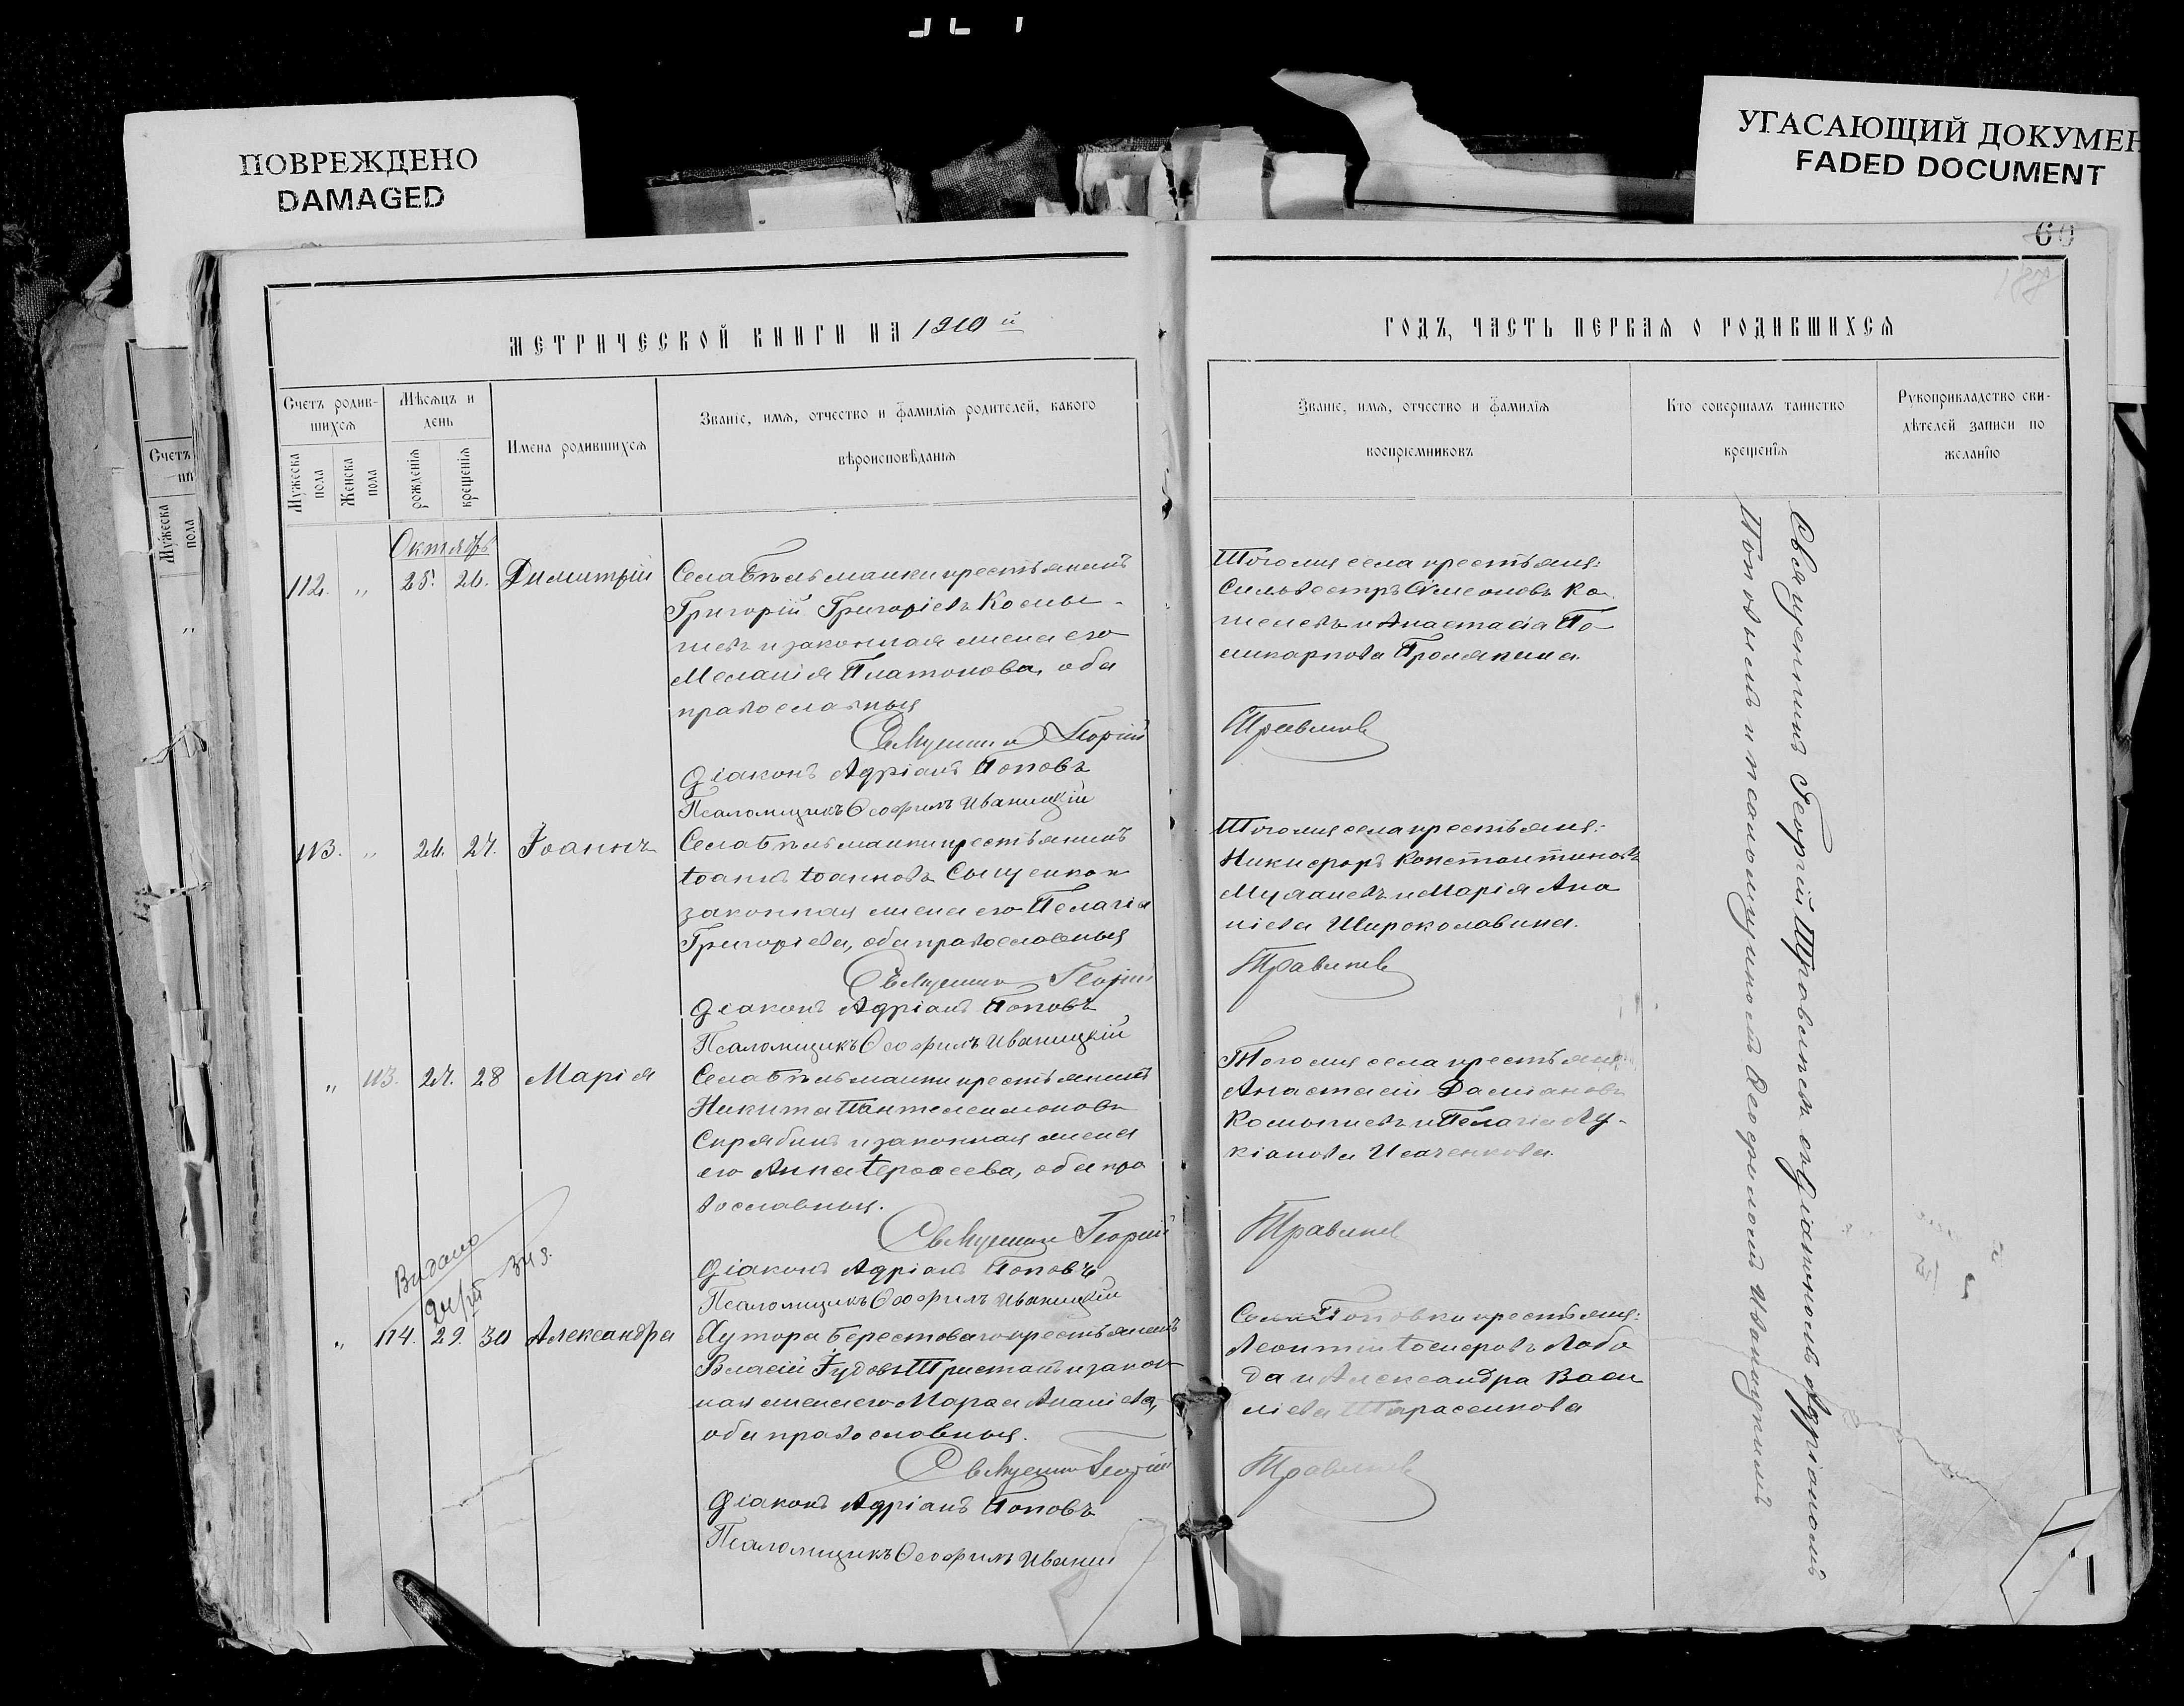 ПОВРЕЖДЕНО
DAMAGED
УГАСАЮЩИЙ ДОКУМЕН
FADED DOCUMENT
60
187
МЕТРИЧЕСКОЙ КНИГИ НА 1910 й
ГОДЪ, ЧАСТЬ ПЕРВАЯ О РОДИВШИХСЯ
Счетъ родив-
шихся
Мужеска пола
Женска пола
Мѣсяцъ и
день
рожденія
крещенія
Имена родившихся
Званіе, имя, отчество и фамилія родителей, какого
вѣроисповѣданія
Званіе, имя, отчество и фамилія
воспріемниковъ
Кто совершалъ таинство
крещенія
Рукоприкладство сви-
дѣтелей записи по
желанію
Октябрь
112. „ 25. 26. Димитрій
Села Бѣльманки крестьянинъ
Григорій Григоріевъ Колпы-
шевъ и законная жена его
Меланія Платонова, оба
православныя
Священникъ Георгій
Діаконъ Адріанъ Поповъ
Псаломщикъ Ѳеофилъ Иваницкій
Того же села крестьяне:
Сильвестръ Симеоновъ Ко-
шелевъ и Анастасія По-
ликарпова Пролякина.
Травиневъ
113. „ 26. 27. Іоаннъ
Села Бѣльманки крестьянинъ
Іоаннъ Іоанновъ Сыщенко и
законная жена его Пелагія
Григоріева, оба православныя
Священникъ Георгій
Діаконъ Адріанъ Поповъ
Псаломщикъ Ѳеофилъ Иваницкій
Того же села крестьяне:
Никифоръ Константиновъ
и Марія Ана
ніева Широколавина.
Травиневъ
„ 113. 27. 28 Марія
Села Бѣльманки крестьянинъ
Никита Пантелеимоновъ
Скрябинъ и законная жена
его Анна Ерофеева, оба пра
вославныя.
Священникъ Георгій
Діаконъ Адріанъ Поповъ
Псаломщикъ Ѳеофилъ Иваницкій
Того же села крестьяне:
Анастасій Даміановъ
и Пелагія Лу-
кіанова Исаченкова.
Травиневъ
Выдано
„ 114. 29. 30 Александра
Хутора Берестоваго крестьянинъ
Власій Іудовъ Тристанъ и закон
ная жена его Марфа Ананіева,
оба православныя.
Священникъ Георгій
Діаконъ Адріанъ Поповъ
Псаломщикъ Ѳеофилъ Иваниц
Села Поповки крестьяне:
Леонтій Іосифовъ Лобо
да и Александра Васи
ліева Тарасенкова
Травиневъ
Священникъ Георгій Травиневъ съ діакономъ Адріаномъ
Поповымъ и псаломщикомъ Ѳеофиломъ Иваницкимъ